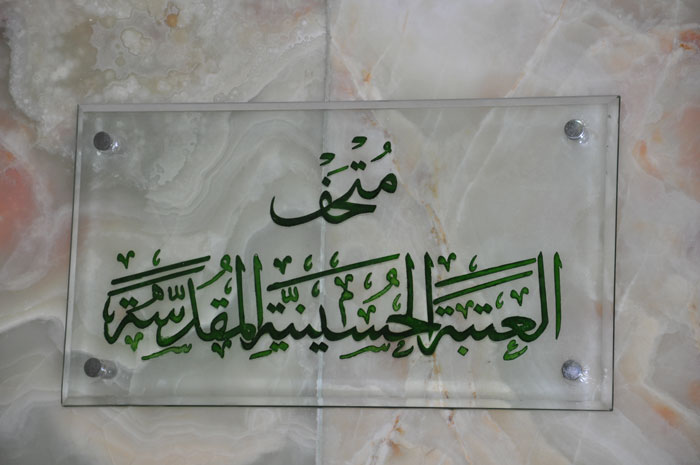 مُتْحَف
العتبة الحُسينيَّة المُقدَّسة